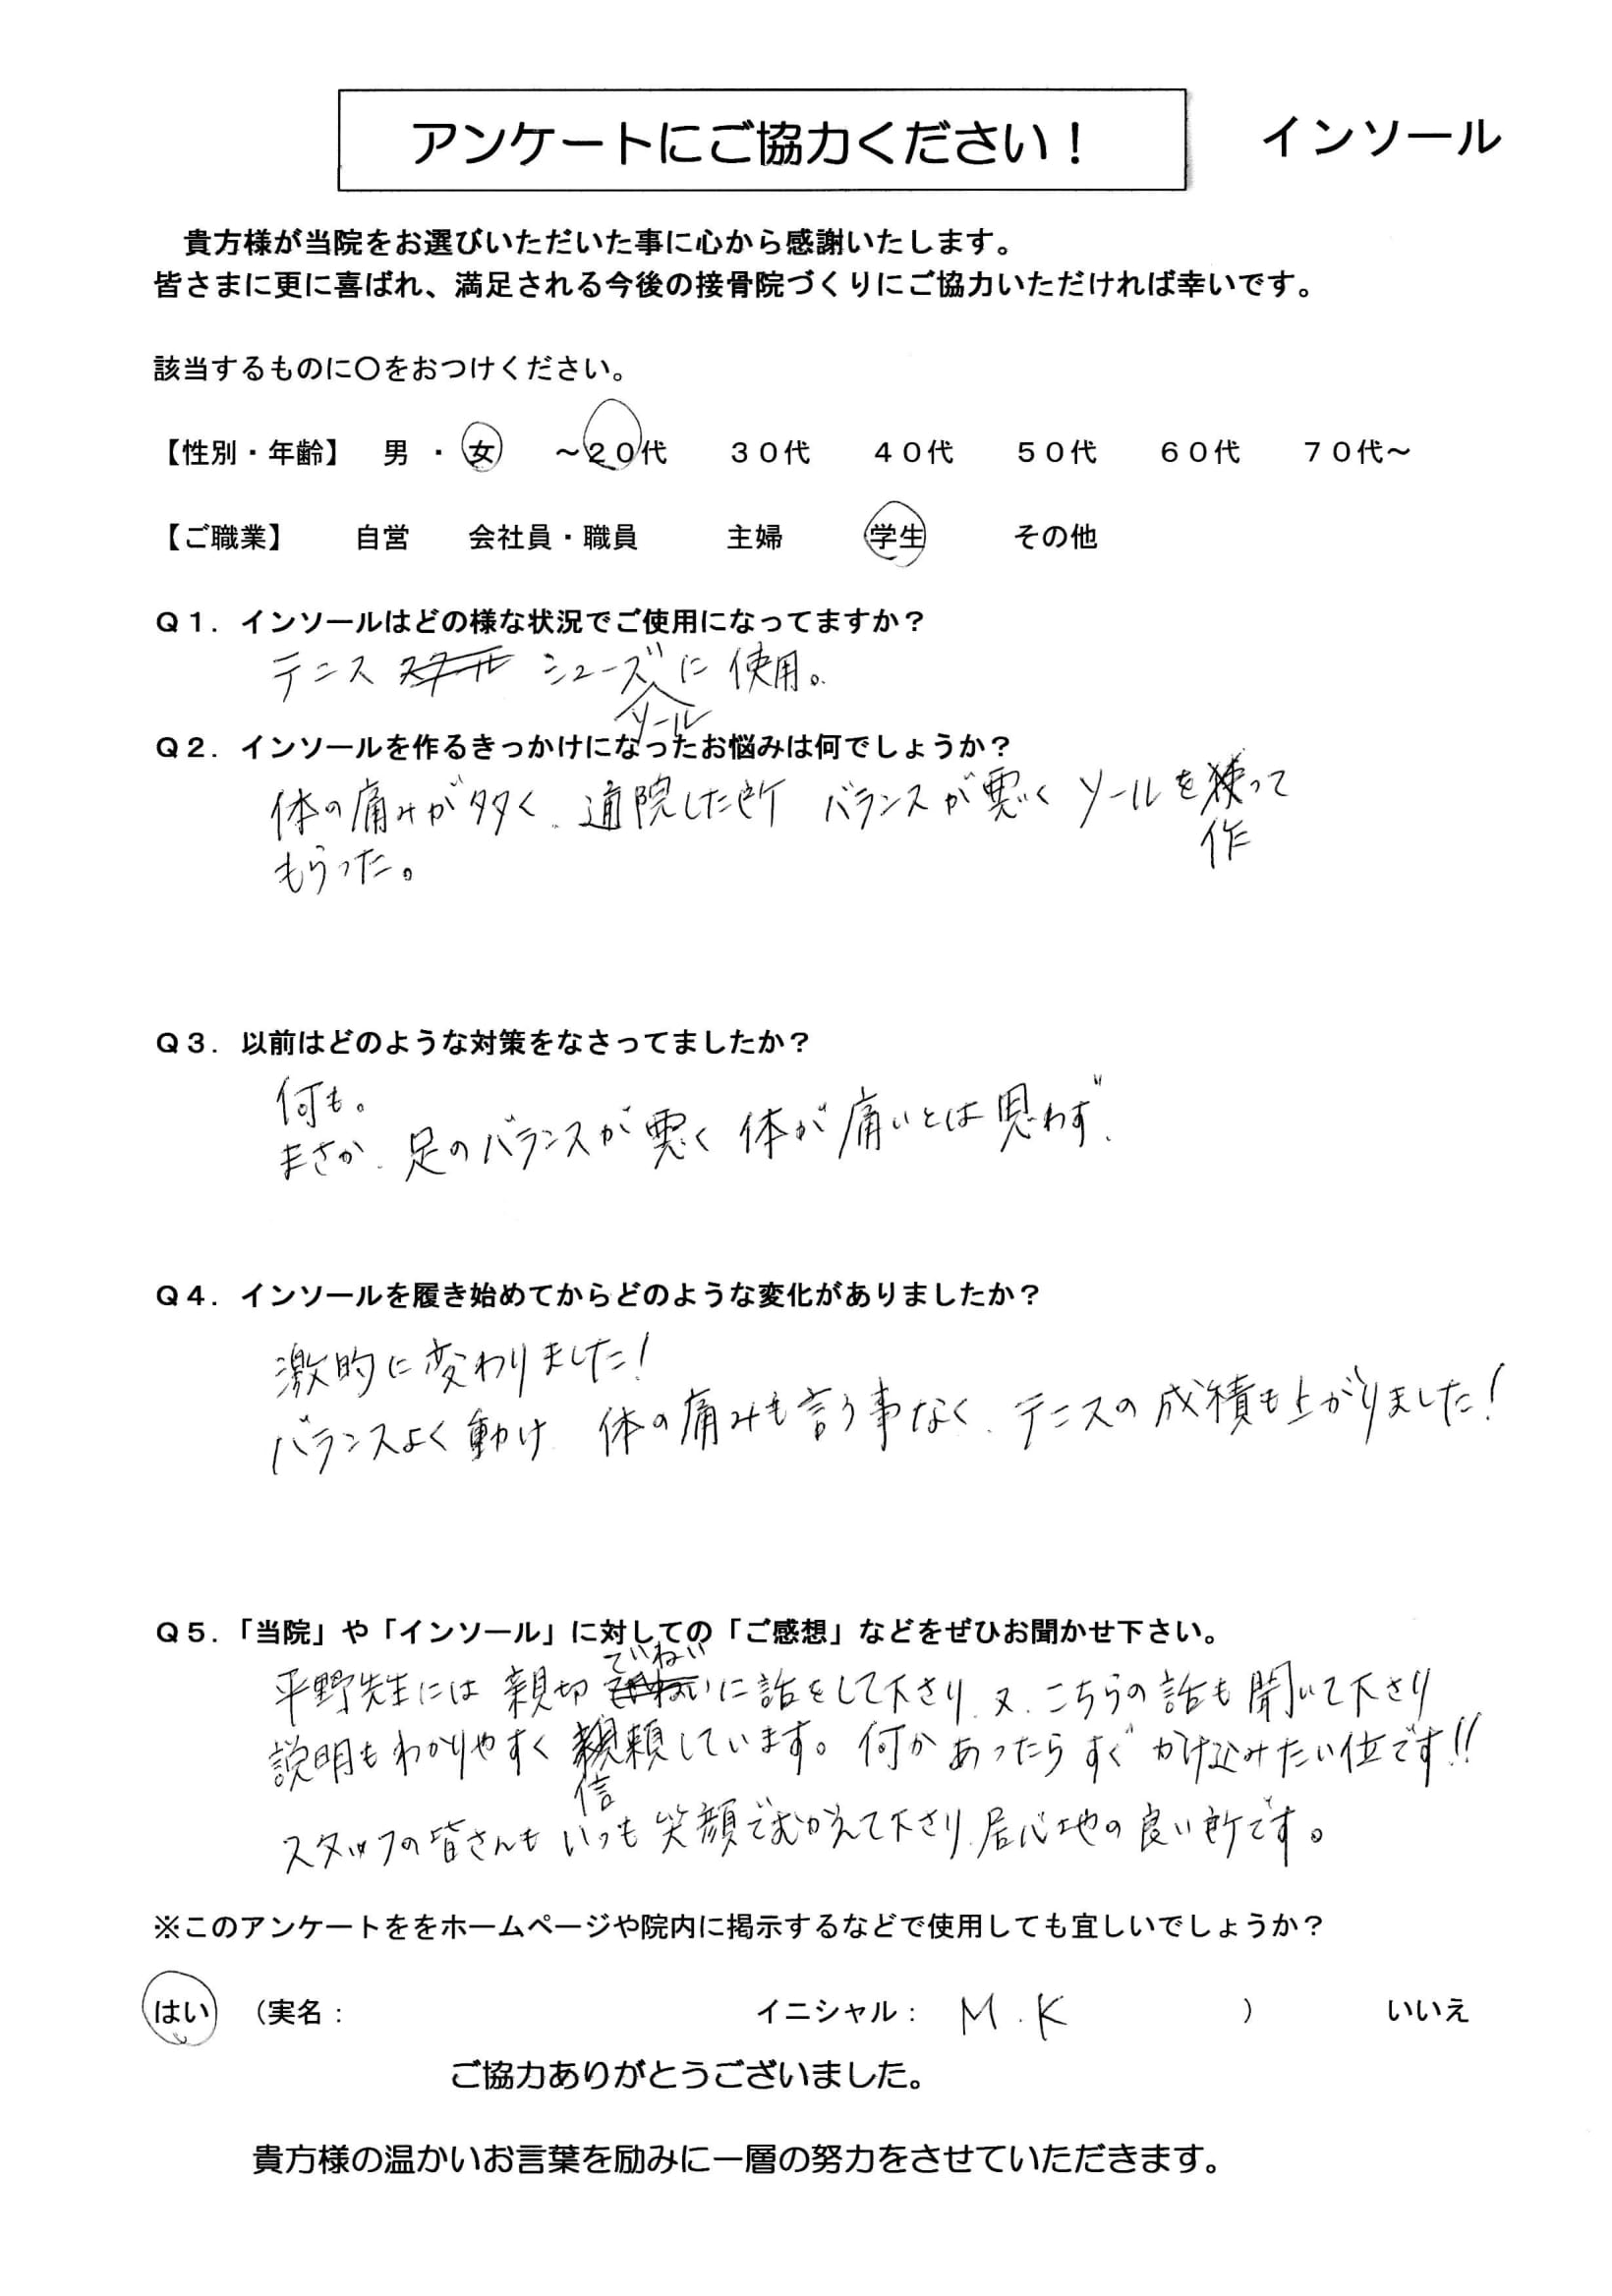 アンケートにご協力ください！　インソール
貴方様が当院をお選びいただいた事に心から感謝いたします。
皆さまに更に喜ばれ、満足される今後の接骨院づくりにご協力いただければ幸いです。
該当するものに〇をおつけください。
【性別・年齢】　男　・　女　～２０代　３０代　４０代　５０代　６０代　７０代～
【ご職業】　自営　会社員・職員　主婦　学生　その他
Ｑ１．インソールはどの様な状況でご使用になってますか？
テニス シューズに 使用。
ソール
Ｑ２．インソールを作るきっかけになったお悩みは何でしょうか？
体の痛みが多く、通院した所 バランスが悪く ソールを作って
もらった。
Ｑ３．以前はどのような対策をなさってましたか？
何も。
まさか、足のバランスが悪く 体が痛いとは思わず、
Ｑ４．インソールを履き始めてからどのような変化がありましたか？
激的に変わりました！
バランスよく動け 体の痛みも言う事なく、テニスの成積も上がりました！
Ｑ５．「当院」や「インソール」に対しての「ご感想」などをぜひお聞かせ下さい。
平野先生には 親切 ていねいに話をして下さり、又、こちらの話も聞いて下さり
説明もわかりやすく 信頼しています。何かあったらすぐ かけ込みたい位です!!
スタッフの皆さんも いつも 笑顔でむかえて下さり、居心地の良い所です。
※このアンケートををホームページや院内に掲示するなどで使用しても宜しいでしょうか？
はい　（実名：　イニシャル：　M.K　）　いいえ
ご協力ありがとうございました。
貴方様の温かいお言葉を励みに一層の努力をさせていただきます。